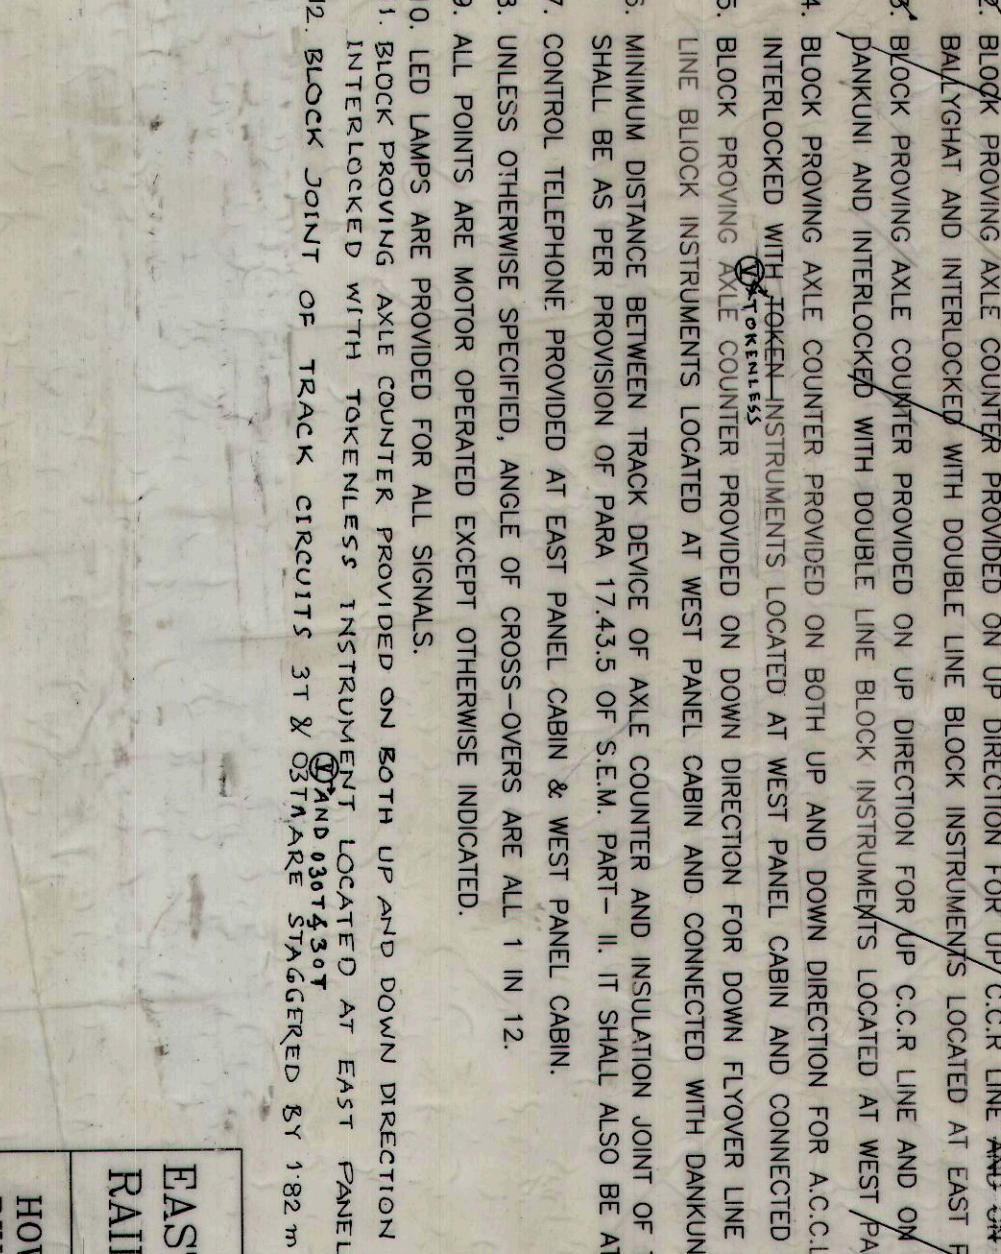 2. BLOCK PROVING AXLE COUNTER PROVIDED ON UP DIRECTION FOR UP C.C.R LINE AND ON
BALLYGHAT AND INTERLOCKED WITH DOUBLE LINE BLOCK INSTRUMENTS LOCATED AT EAST P
3. BLOCK PROVING AXLE COUNTER PROVIDED ON UP DIRECTION FOR UP C.C.R LINE AND ON
DANKUNI AND INTERLOCKED WITH DOUBLE LINE BLOCK INSTRUMENTS LOCATED AT WEST PA
4. BLOCK PROVING AXLE COUNTER PROVIDED ON BOTH UP AND DOWN DIRECTION FOR A.C.C.L
INTERLOCKED WITH TOKEN INSTRUMENTS LOCATED AT WEST PANEL CABIN AND CONNECTED
V TOKENLESS
5. BLOCK PROVING AXLE COUNTER PROVIDED ON DOWN DIRECTION FOR DOWN FLYOVER LINE
LINE BLIOCK INSTRUMENTS LOCATED AT WEST PANEL CABIN AND CONNECTED WITH DANKUN
6. MINIMUM DISTANCE BETWEEN TRACK DEVICE OF AXLE COUNTER AND INSULATION JOINT OF T
SHALL BE AS PER PROVISION OF PARA 17.43.5 OF S.E.M. PART- II. IT SHALL ALSO BE AT
7. CONTROL TELEPHONE PROVIDED AT EAST PANEL CABIN & WEST PANEL CABIN.
8. UNLESS OTHERWISE SPECIFIED, ANGLE OF CROSS-OVERS ARE ALL 1 IN 12.
9. ALL POINTS ARE MOTOR OPERATED EXCEPT OTHERWISE INDICATED.
10. LED LAMPS ARE PROVIDED FOR ALL SIGNALS.
11. BLOCK PROVING AXLE COUNTER PROVIDED ON BOTH UP AND DOWN DIRECTION
INTERLOCKED WITH TOKENLESS INSTRUMENT LOCATED AT EAST PANEL
V AND 030T & 30T
12. BLOCK JOINT OF TRACK CIRCUITS 3T & 03T ARE STAGGERED BY 1.82 m
EAS
RAI
HOW